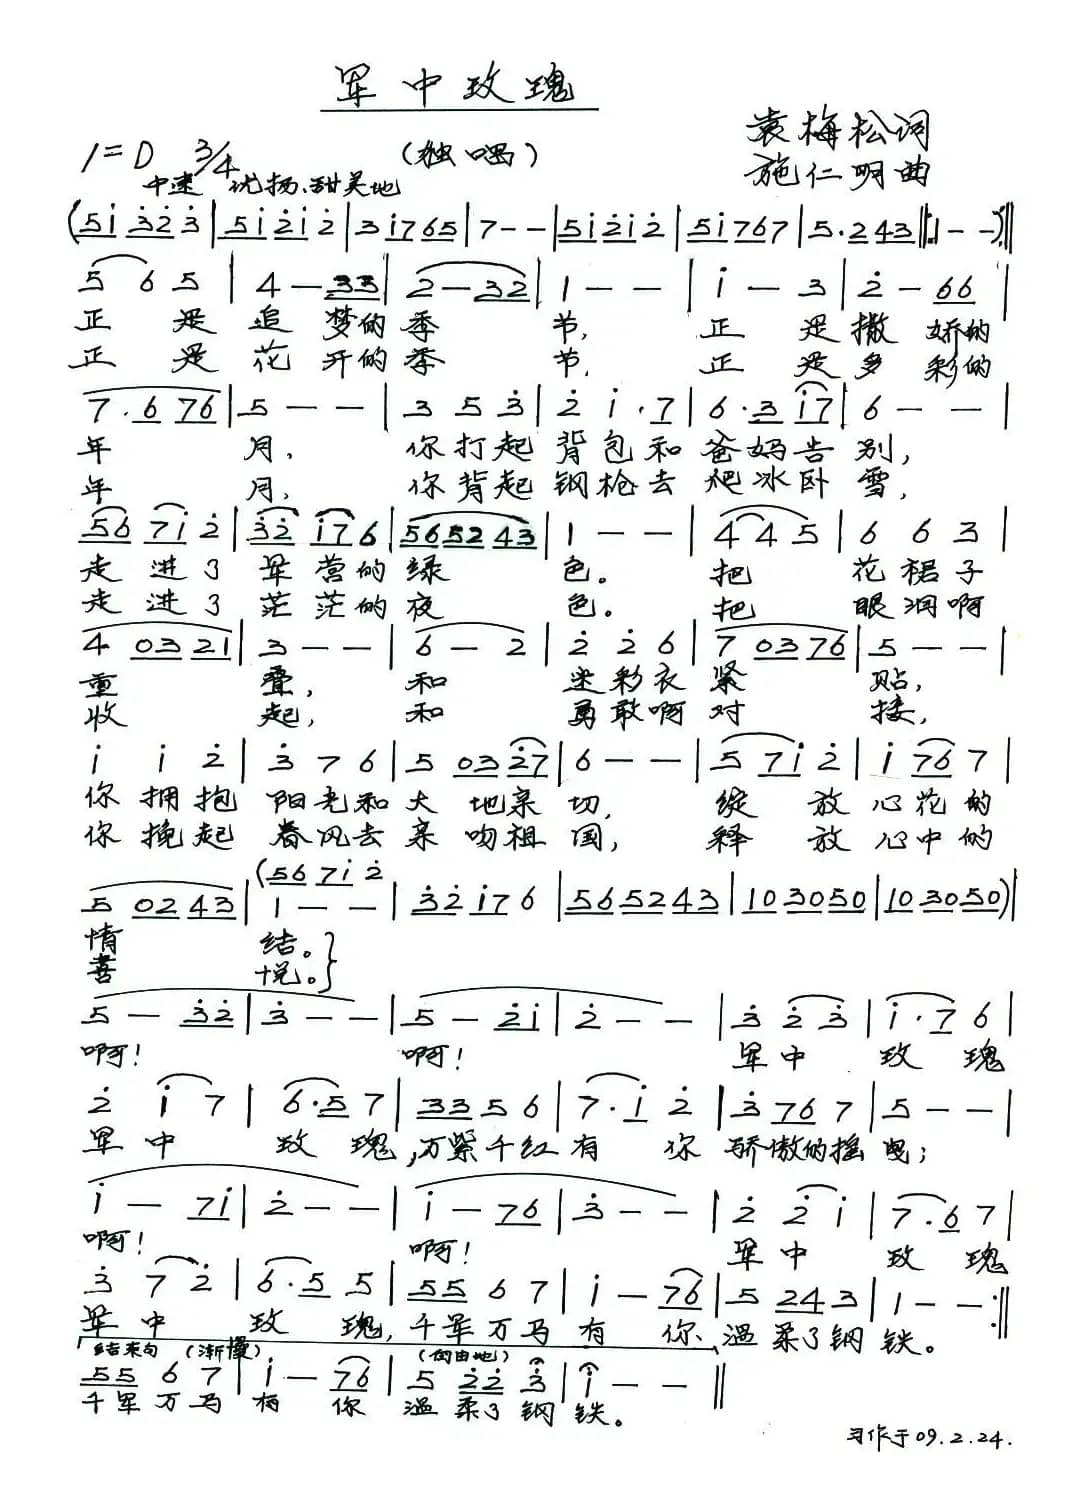 军中玫瑰
袁梅松词
1=D 3/4 (独唱)
施仁明曲
中速 优扬、甜美地
(5i 323 | 5i2i2 | 3i765 | 7-- | 5i2i2 | 5i767 | 5·243 |: 1-- :|
5 6 5 | 4-33 | 2-32 | 1-- | i-3 | 2-66 |
正是追梦的季节,正是撒娇的
正是花开的季节,正是多彩的
7·676 | 5-- | 3 5 3 | 2 i·7 | 6·3i7 | 6-- |
年月,你打起背包和爸妈告别,
年月,你背起钢枪去爬冰卧雪,
567i2 | 32i76 | 565243 | 1-- | 4 4 5 | 6 6 3 |
走进了军营的绿色。把花裙子
走进了茫茫的夜色。把眼泪啊
4 0321 | 3-- | 6-2 | 2 2 6 | 7 0376 | 5-- |
重叠,和迷彩衣紧贴,
收起,和勇敢啊对接,
i i 2 | 3 7 6 | 5 0327 | 6-- | 5 7i2 | i 767 |
你拥抱阳光和大地亲切,绽放心花的
你挽起春风去亲吻祖国,释放心中的
(567i2
5 0243 | 1-- | 32i76 | 565243 | 103050 | 103050) |
情结。}
喜悦。}
5-32 | 3-- | 5-2i | 2-- | 3 2 3 | i·7 6 |
啊!啊!军中玫瑰
2 i 7 | 6·5 7 | 33 5 6 | 7·i 2 | 3 767 | 5-- |
军中玫瑰,万紧千红有你骄傲的摇曳;
i-7i | 2-- | i-76 | 3-- | 2 2 i | 7·6 7 |
啊!啊!军中玫瑰
3 7 2 | 6·5 5 | 55 6 7 | i-76 | 5 243 | 1-- :|
军中玫瑰,千军万马有你、温柔了钢铁。
结束句 (渐慢) (自由地)
55 6 7 | i-76 | 5 22 3 | i-- ||
千军万马有你温柔了钢铁。
习作于09.2.24.